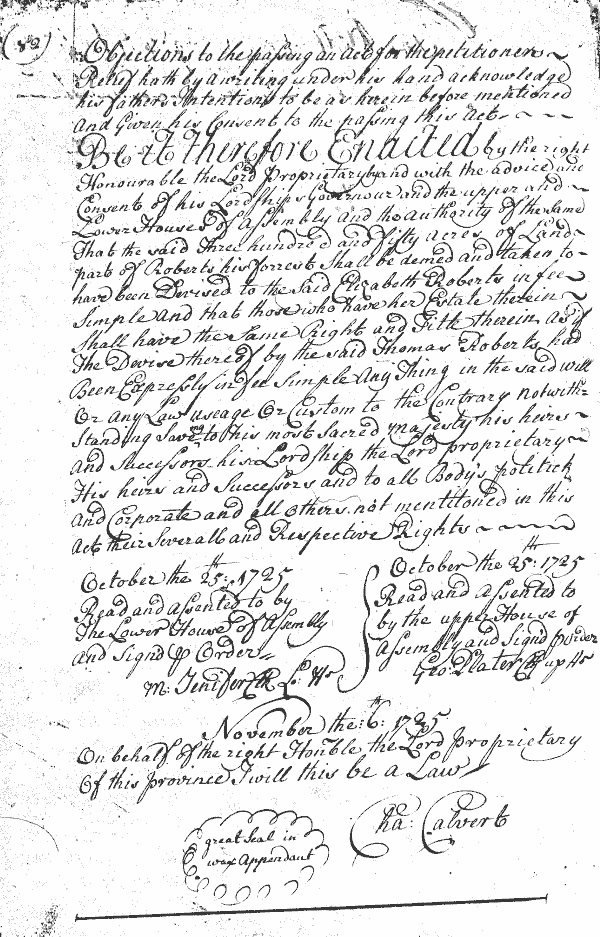 82
Objections to the passing an act for the petitioners
Relief hath by a writing under his hand acknowledge
his fathers Intentions to be as herein before mentioned
And Given his Consent to the passing this Act
Be it therefore Enacted by the right
Honourable the Lord Proprietary by and with the advice and
Consent of his Lordships Governour and the upper and
Lower Houses of Assembly and the authority of the same
That the said Three hundred and fifty acres of Land
part of Roberts his forrest Shall be demed and taken to
have been Devised to the said Elizabeth Roberts in fee
Simple and that those who have her Estate therein
Shall have the same Right and Title therein as if
The Devise thereof by the said Thomas Roberts had
Been Expressly in fee Simple Any Thing in the said will
Or any Law useage Or Custom to the Contrary notwith=
Standing Saveing to his most Sacred majesty his heirs
And Successors his Lordship the Lord proprietary
His heirs and Successors and to all Body's politick
And Corporate and all others not mentitoned in this
Act their Severall and Respective Rights
October the 25th: 1725
Read and assented to by
The Lower House of Assembly
And Signd p Order
M: Jenifer Clk Lo: Hs
October the 25th: 1725
Read and assented to
by the upper House of
Assembly and Signd p order
Geo: Plater Clk up Hs
November the: 6th: 1725
On behalf of the right Honble the Lord proprietary
Of this province I will this be a Law
Cha: Calvert
great Seal in
wax Appendant